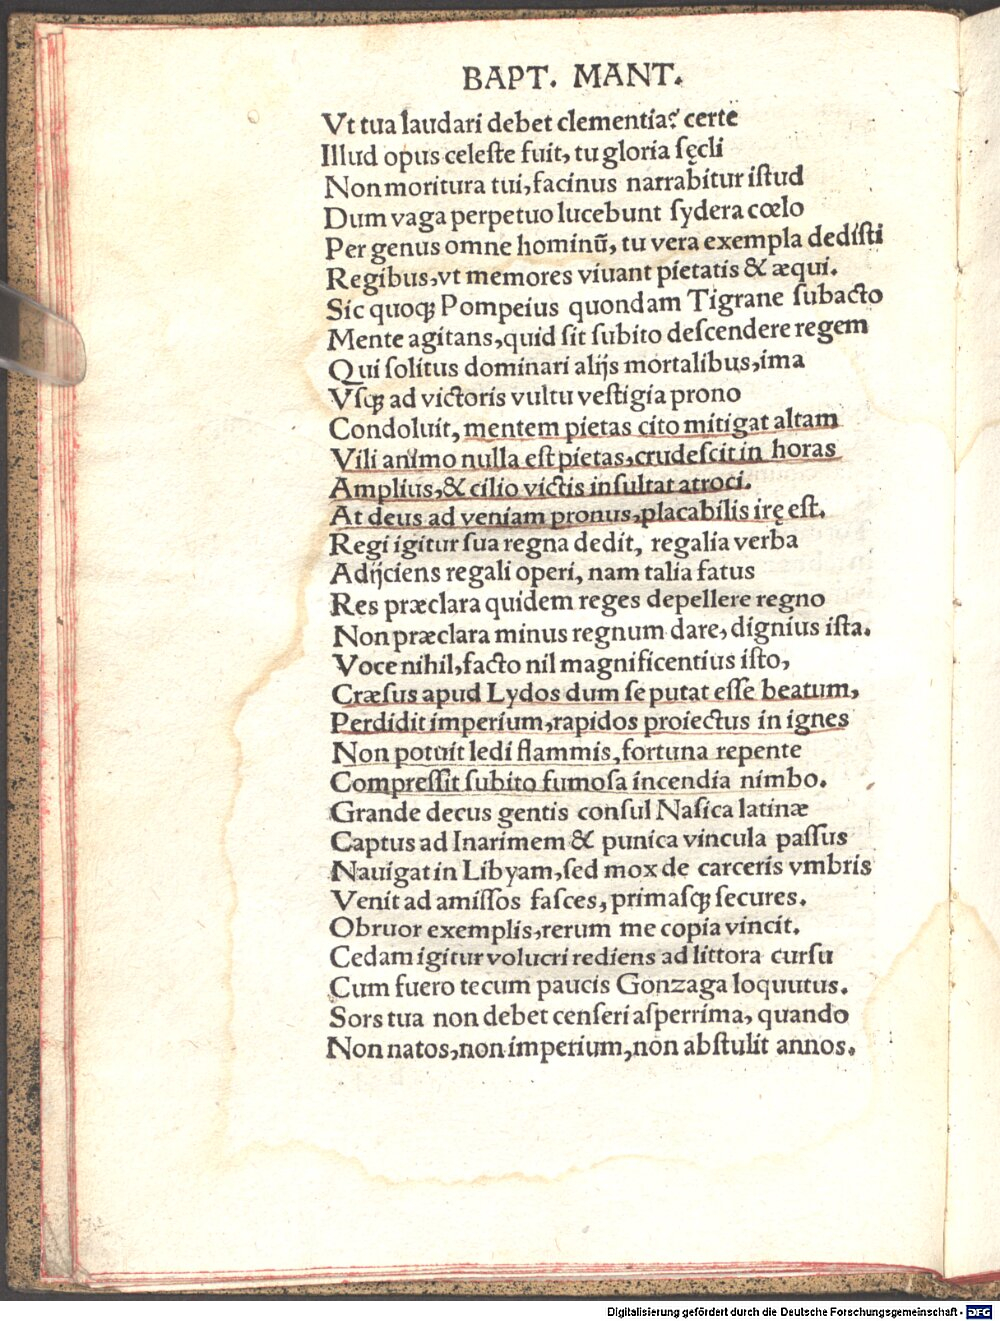 BAPT. MANT.
Vt tua laudari debet clementia? certe
Illud opus celeſte fuit, tu gloria ſęcli
Non moritura tui, facinus narrabitur iſtud
Dum vaga perpetuo lucebunt ſydera cœlo
Per genus omne hominū, tu vera exempla dediſti
Regibus, vt memores viuant pietatis & æqui.
Sic quoqꝫ Pompeius quondam Tigrane ſubacto
Mente agitans, quid ſit ſubito deſcendere regem
Qui ſolitus dominari alijs mortalibus, ima
Vſqꝫ ad victoris vultu veſtigia prono
Condoluit, mentem pietas cito mitigat altam
Vili animo nulla eſt pietas, crudeſcit in horas
Amplius, & cilio victis inſultat atroci.
At deus ad veniam pronus, placabilis irę eſt.
Regi igitur ſua regna dedit, regalia verba
Adijciens regali operi, nam talia fatus
Res præclara quidem reges depellere regno
Non præclara minus regnum dare, dignius iſta.
Voce nihil, facto nil magnificentius iſto,
Cræſus apud Lydos dum ſe putat eſſe beatum,
Perdidit imperium, rapidos proiectus in ignes
Non potuit ledi flammis, fortuna repente
Compreſſit ſubito fumoſa incendia nimbo.
Grande decus gentis conſul Naſica latinæ
Captus ad Inarimem & punica vincula paſſus
Nauigat in Libyam, ſed mox de carceris vmbris
Venit ad amiſſos faſces, primaſqꝫ ſecures.
Obruor exemplis, rerum me copia vincit.
Cedam igitur volucri rediens ad littora curſu
Cum fuero tecum paucis Gonzaga loquutus.
Sors tua non debet cenſeri aſperrima, quando
Non natos, non imperium, non abſtulit annos.
Digitalisierung gefördert durch die Deutsche Forschungsgemeinschaft - DFG